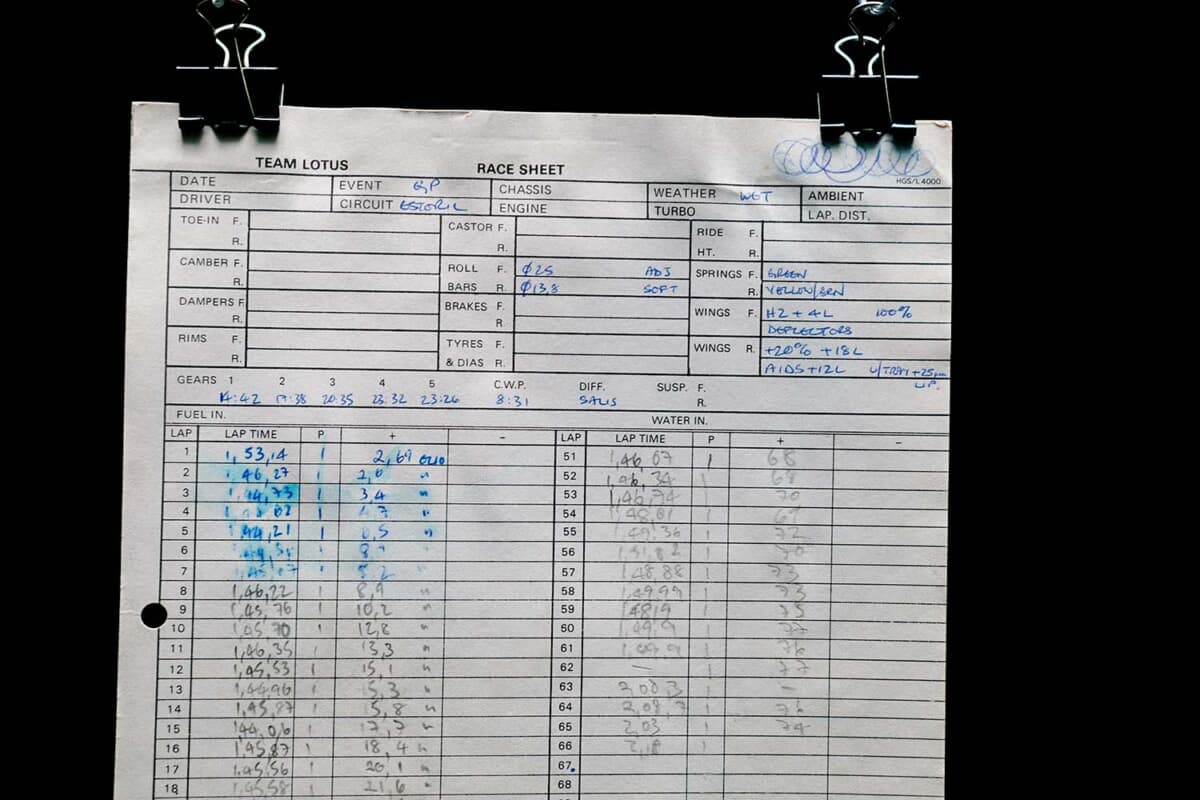 TEAM LOTUS RACE SHEET
HGS/L 4000
DATE EVENT GP CHASSIS WEATHER WET AMBIENT
DRIVER CIRCUIT ESTORIL ENGINE TURBO LAP. DIST.
TOE-IN F. CASTOR F. RIDE F.
R. R. HT. R.
CAMBER F. ROLL F. Ø25 ADJ SPRINGS F. GREEN
R. BARS R. Ø13,8 SOFT R. YELLOW/GRN
DAMPERS F. BRAKES F. WINGS F. H2 + 4L 100%
R. R. DEFLECTORS
RIMS F. TYRES F. WINGS R. +20% +18L
R. & DIAS R. AIDS+12L U/TRAY+25mm
UP.
GEARS 1 2 3 4 5 C.W.P. DIFF. SUSP. F.
14:42 17:38 20:35 23:32 23:26 8:31 SALIS R.
FUEL IN. WATER IN.
LAP LAP TIME P + - LAP LAP TIME P + -
1 1,53,14 1 2,69 51 1,46,67 1 68
2 1,46,27 1 " 52 1,46,34 1 68
3 1,44,73 1 3,4 " 53 1,46,74 1 70
4 1 " 54 1,48,01 1
5 1,44,21 1 " 55 1,49,36 1 72
6 56 1,51,82 1 70
7 57 1,48,88 1 73
8 1,46,22 1 8,9 " 58 1,49,99 1 73
9 1,45,76 1 10,2 " 59 1,48,9 1 75
10 1,45,70 1 12,8 " 60 1,49,9 1 77
11 1,46,35 1 13,3 " 61 1,49,9 1 76
12 1,45,53 1 15,1 " 62 — 1 77
13 1,44,96 1 15,3 " 63 2,00,3 1 –
14 1,45,87 1 15,8 " 64 1
15 1,44,06 1 17,7 " 65 2,03 1 74
16 1,45,87 1 18,4 " 66 2,18 1
17 1,45,56 1 20,1 " 67
18 1,45,58 1 21,6 " 68